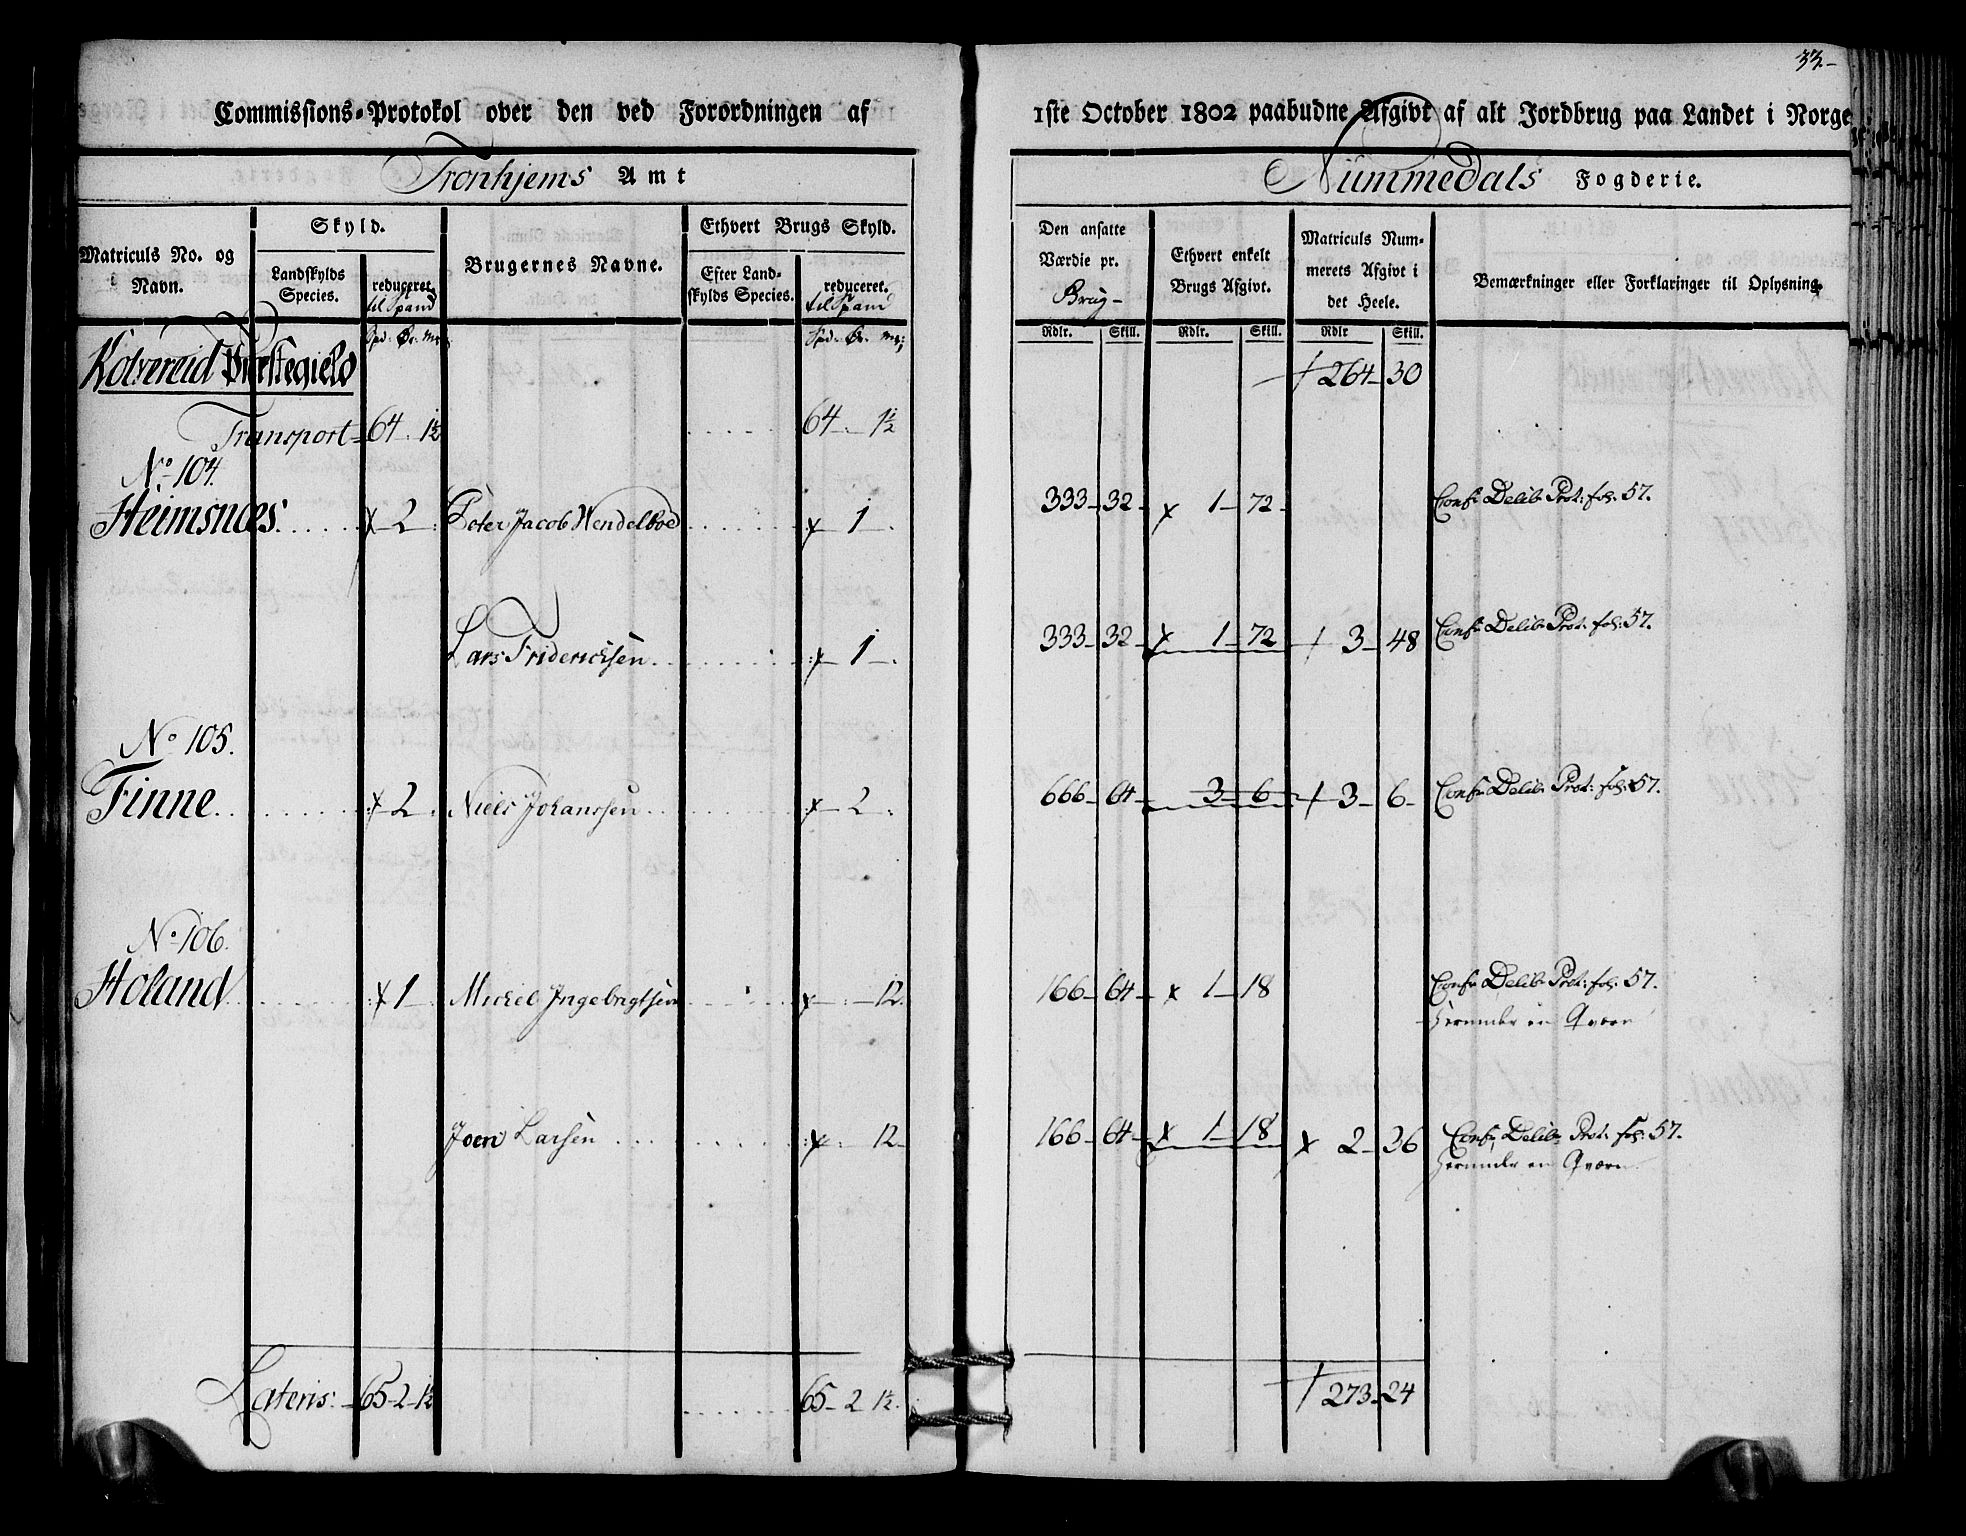 33.-
Commissions-Protokol over den ved Forordningen af 1ste October 1802 paabudne Afgivt af alt Jordbrug paa Landet i Norge
Tronhjems Amt
Nummedals Fogderie.
Matriculs No. og Navn.
Skyld.
Landskylds Species.
reduceret. til Spand
Brugernes Navne.
Ethvert Brugs Skyld.
Efter Landskylds Species.
reduceret. til Spand
Den ansatte Værdie pr. Brug-
Ethvert enkelt Brugs Afgivt.
Matriculs Nummerets Afgivt i det Heele.
Bemærkninger eller Forklaringer til Oplysning.
Spd: Ør: Mr: Spd: Ør: Mr: Rdlr. Skill. Rdlr. Skill. Rdlr Skill.
Kolvereid Præstegield 264 - 30
Transport = 64. 1½ 64 - 1½
No 104.
Heimsnæs: x 2 Peter Jacob Wendelboe x 1 333 - 32 x 1 - 72 Confr Delib: Prot: fol: 57.
Lars Friderichsen x 1 333 - 32 x 1 - 72 3 - 48 Confr Delib: Prot: fol: 57.
No 105.
Finne x 2 Niels Johanssen x 2 666 - 64 3 - 6 3 - 6 Confr Delib: Prot: fol: 57.
No 106.
Holand x 1 Michel Ingebrigtsen x 12. 166 - 64 x 1 - 18 Confr Delib: Prot: fol: 57.
herunder en Qværn
Joen Larsen x 12 166 - 64 x 1 - 18 x 2 - 36 Confr Delib: Prot: fol: 57.
herunder en Qværn
Lateris: 65 - 2 - 1½ 65 - 2 1½ 273 - 24